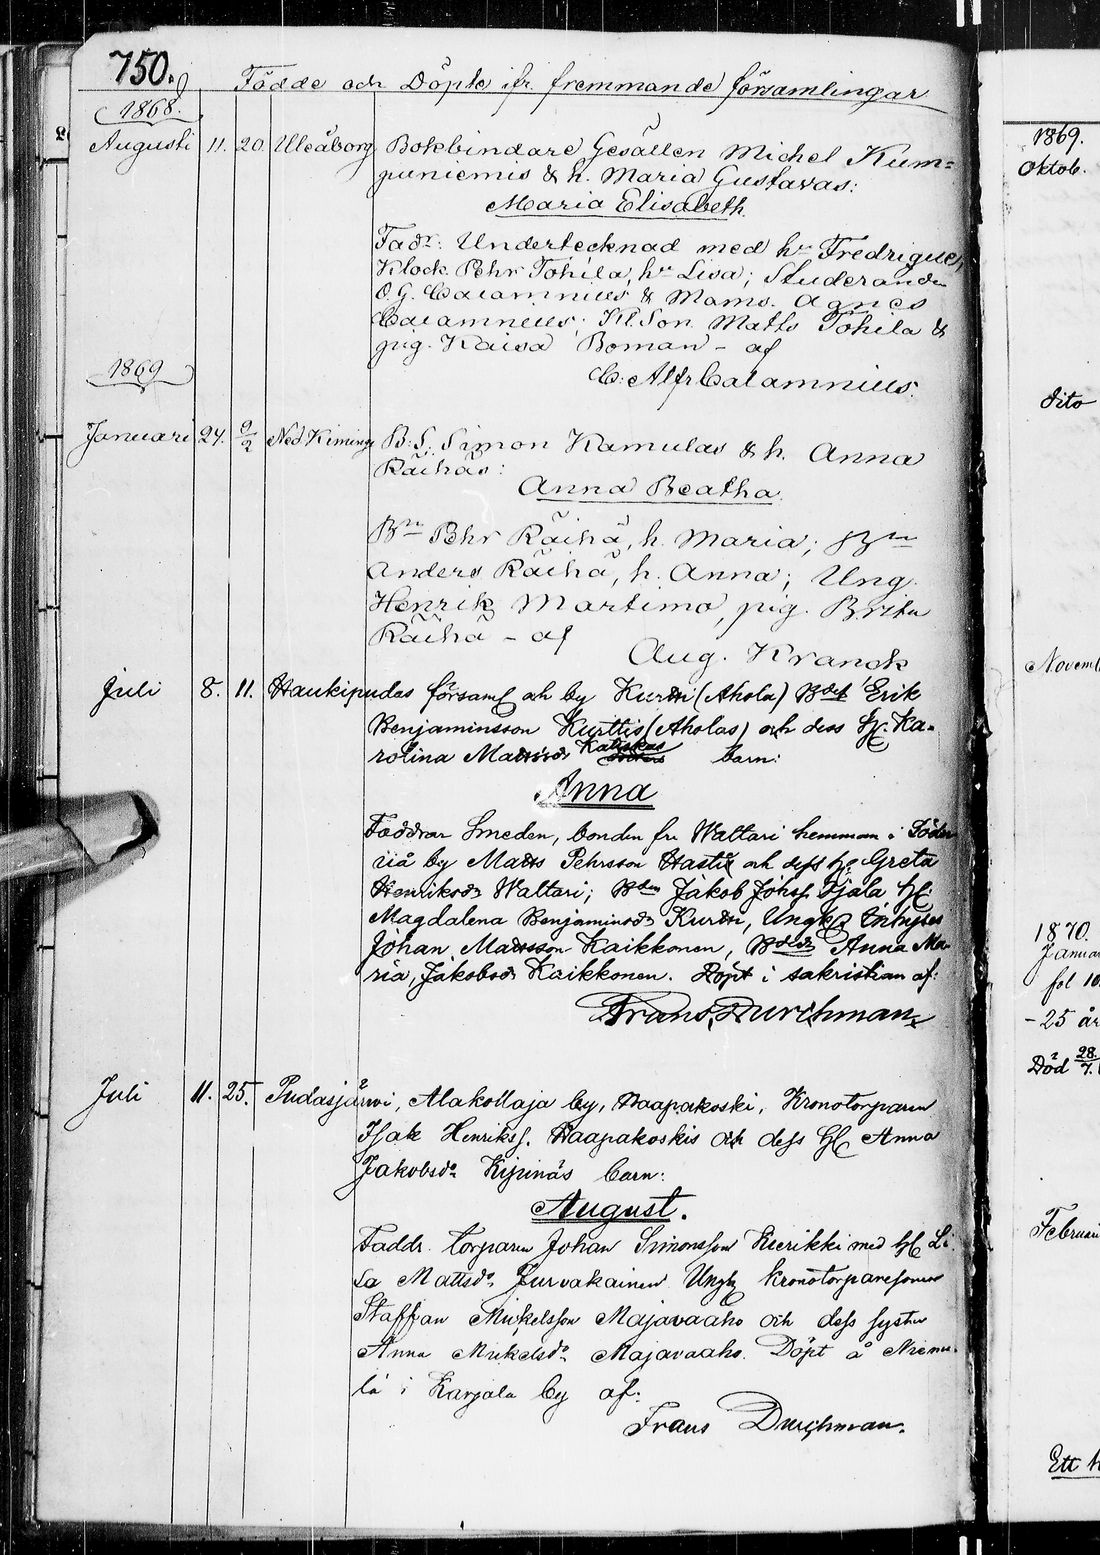 750.
Födde och Döpte ifr. fremmande församlingar
1868.
Augusti 11. 20. Uleåborg Bokbindare Gesällen Michel Kum=
puniemis & h. Maria Gustavas:
Maria Elisabeth.
Fadr: Undertecknad med hu Fredrique,
Klock. Pehr Tohila, hu Lisa; Studeranden
O.G. Calamnius & Mams. Agnes
Calamnius; Kl.Son Matts Tohila &
pig. Kaisa Boman - af
C: Alfr Calamnius.
1869
Januari 24. 9/2 Ned Kiminge B: S. Simon Kamulas & h. Anna
Räihäs:
Anna Beatha.
Bn Pehr Räihä, h. Maria; Bn
Anders Räihä, h. Anna; Ung.
Henrik Martimo, pig. Brita
Räihä - af
Aug. Kranck
Juli 8. 11. Haukipudas församl och by Kurtti (Ahola) Erik
Benjaminsson Kurttis (Aholas) och dess H. Ka-
rolina Mattsdr barn:
Anna
Faddrar Smeden, bonden fr Waltari hemman i Söder
iiå by Matts Pehrsson Hastu och dess H. Greta
Henriksdr Waltari; Jakob Johss Tjala, H.
Magdalena Benjaminsdr Kurtti, Ungk
Johan Mattsson Kaikkonen, Anna Ma-
ria, Jakobsdr Kaikkonen. Döpt i sakristian af:
Frans Durchman.
Juli 11. 25. Pudasjärvi, Alakollaja by, Haapakoski, Kronotorparen
Isak Henrikss. Haapakoskis och dess H. Anna
Jakobsdr Kipinäs barn:
August.
Faddr. torparen Johan Simonsson Kierikki med H Li
sa Mattsdr Jurvakainen Ungk kronotorparesonen
Staffan Mickelsson Majavaaho och dess syster
Anna Mickelsdr Majavaaho. Döpt å Niemi-
lä i Karjala by af:
Frans Durchman.
1869.
Oktob.
dito
1870.
fol 10
-25 år
Död 28./7.
Februari
Ett